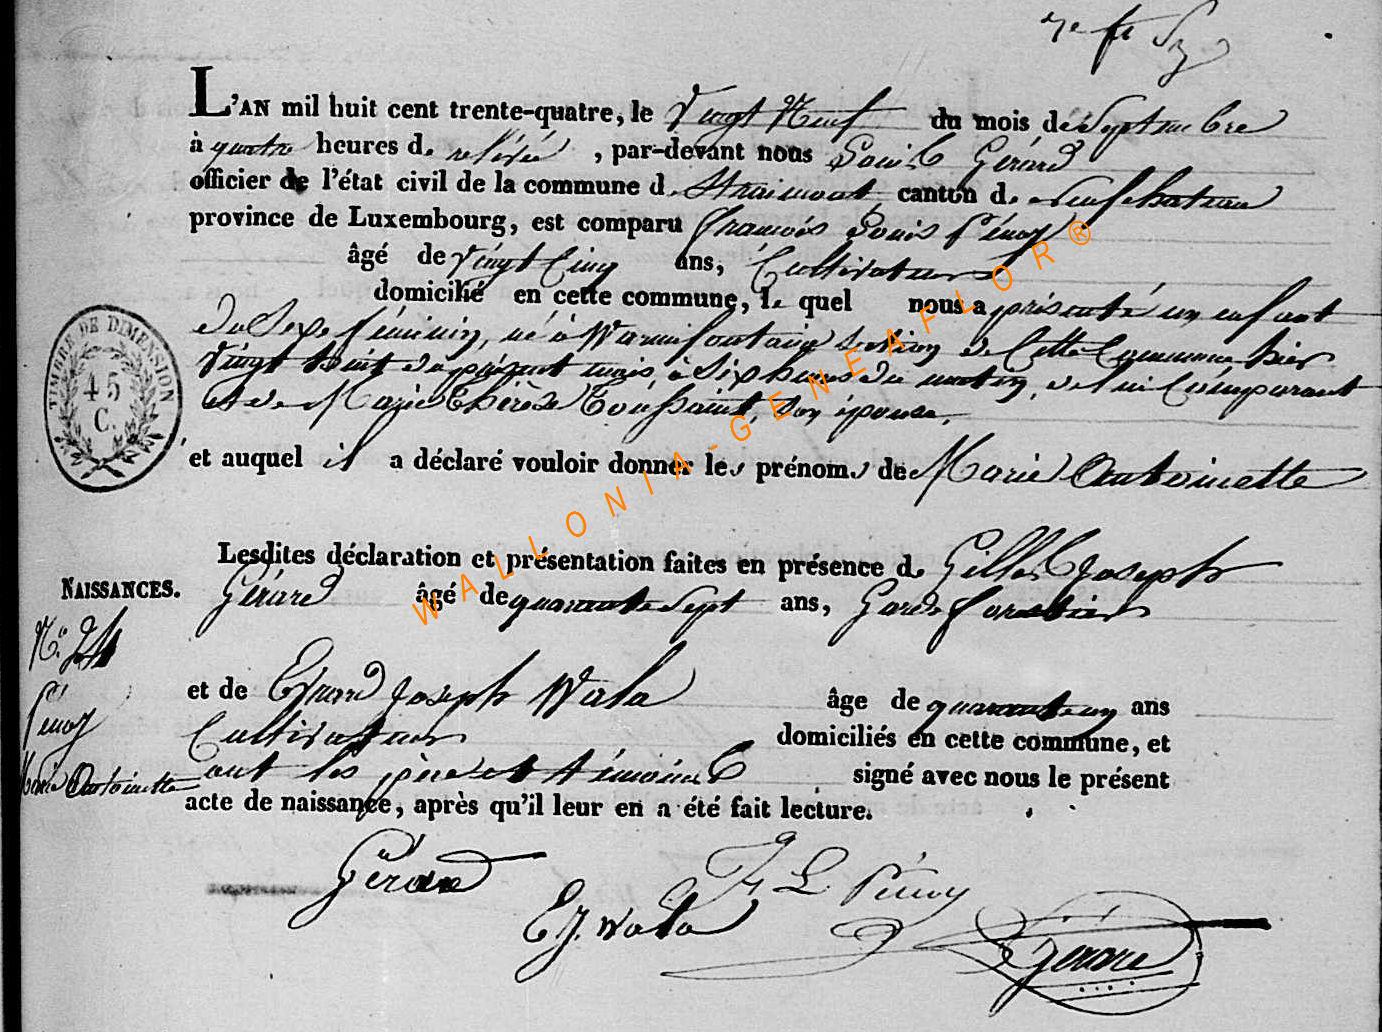 L'AN mil huit cent trente-quatre, le Vingt Neuf du mois de Septembre
à quatre heures de relévée, par-devant nous Louis Gérard
officier de l'état civil de la commune de Straimont, canton de neufchateau
province de Luxembourg, est comparu François Louis Pénoy
âgé de vingt Cinq ans, Cultivateur
domicilié en cette commune, le quel nous a présenté un enfant
du Sexe féminin, né à Warmifontaine section de Cette Commune hier
vingt huit du présent mois à Six heures du matin, de lui Comparant
et de Marie Thérèse Toussaint, son épouse,
et auquel il a déclaré vouloir donner les prénoms de Marie Antoinette
Lesdites déclaration et présentation faites en présence de Gilles Joseph
Gérard âgé de quarante Sept ans, Garde forestier
et de Joseph Wala âge de quarante un ans
Cultivateur domiciliés en cette commune, et
ont les père et témoins signé avec nous le présent
acte de naissance, après qu'il leur en a été fait lecture.
NAISSANCES.
N.°
Pénoy
Marie Antoinette
TIMBRE DE DIMENSION
45
C.
Gérard
E J. Wala
F L Pénoy
Gérard
WALLONIA-GENEAFLOR®